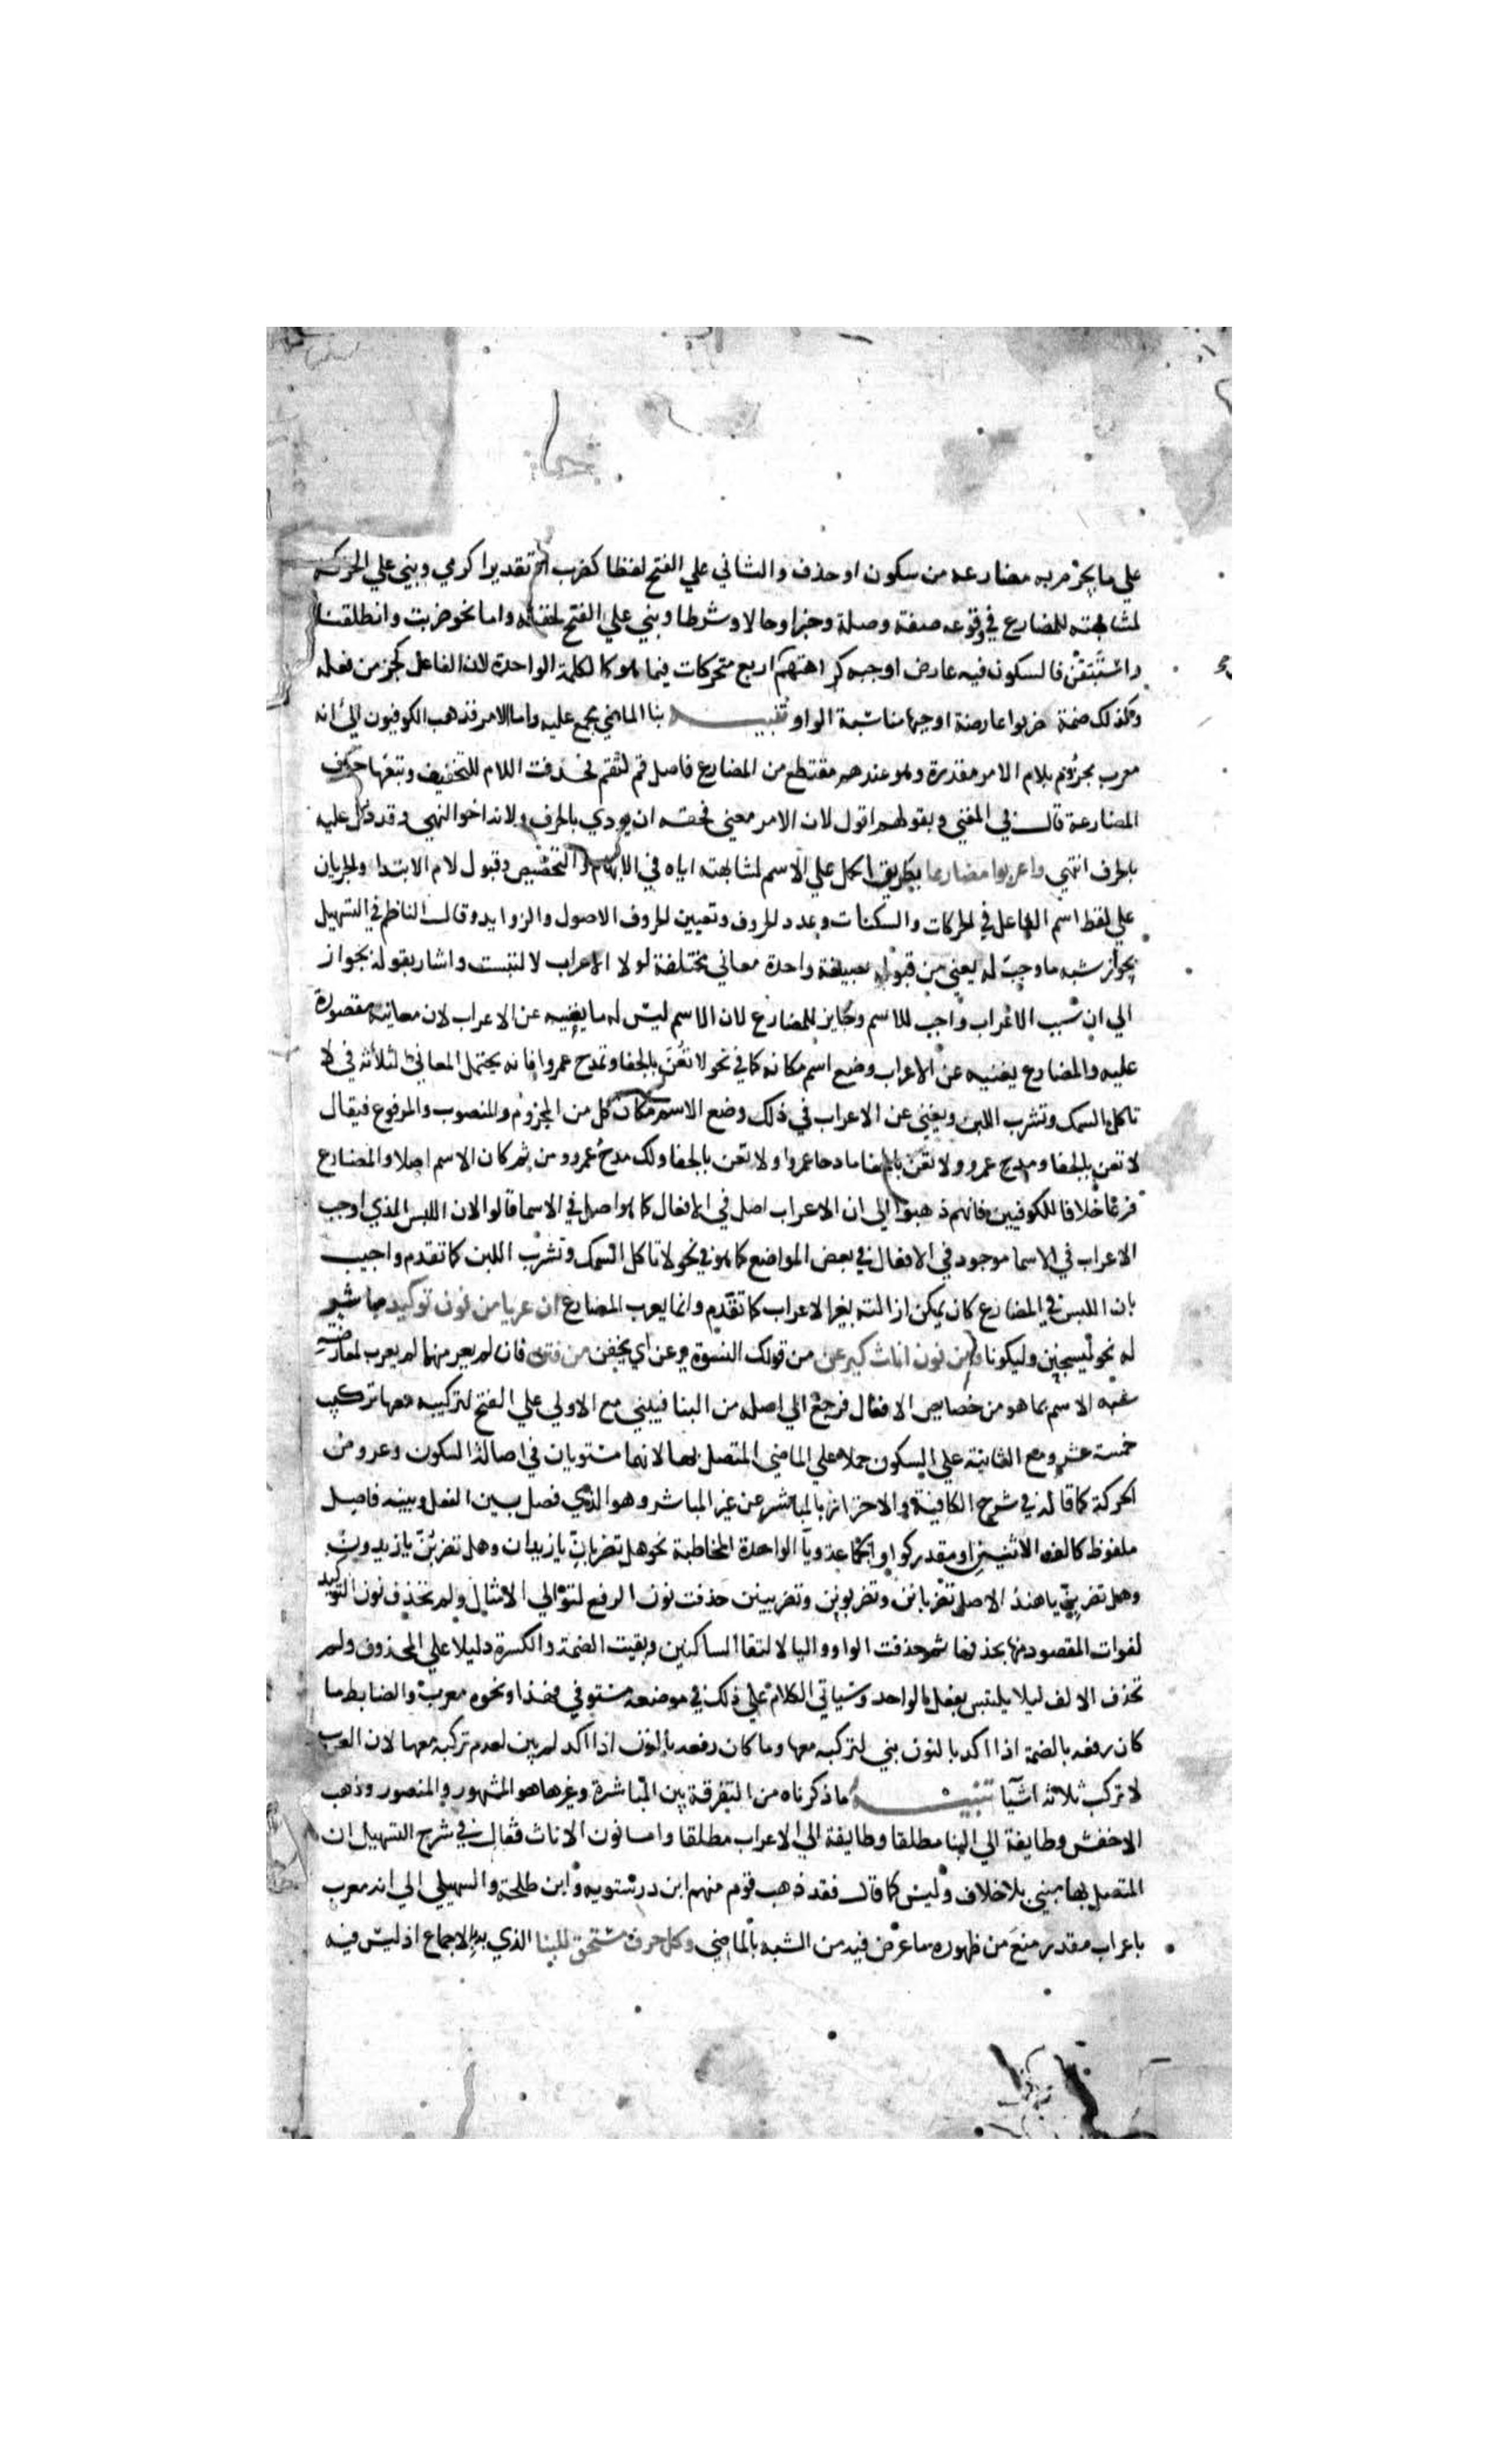 علي ما يجزم به مضارعه من سكون او حذف والثاني علي الفتح لفظا كضرب او تقديرا كرمي وبني علي الحركة
لمشابهته المضارع في وقوعه صفة وصلة وخبرا وحالا وشرطا وبني علي الفتح لخفته واما نحو ضربت وانطلقنا
واستبقن فالسكون فيه عارض اوجبه كراهتهم اربع متحركات فيما هو كالكلمة الواحدة لان الفاعل كجز من فعله
وكذلك ضمة ضربوا عارضة اوجبها مناسبة الواو تنبيه بنا الماضي مجمع عليه واما الامر فذهب الكوفيون الي انه
معرب مجزوم بلام الامر مقدرة وهو عندهم مقتطع من المضارع فاصل قم لتقم فحذفت اللام للتخفيف وتبعها حرف
المضارعة قال في المغني وبقولهم اقول لان الامر معني فحقه ان يودي بالحرف ولانه اخو النهي وقد دل عليه
بالحرف انتهي واعربوا مضارعا بطريق الحمل علي الاسم لمشابهته اياه في الابهام والتخصيص وقبول لام الابتدا والجريان
علي لفظ اسم الفاعل في الحركات والسكنات وعدد الحروف وتعيين الحروف الاصول والزوايد وقال الناظم في التسهيل
بجواز شبه ما وجب له يعني من قبوله بصيغة واحدة معاني مختلفة لولا الاعراب لالتبست واشار بقوله بجواز
الي ان سبب الاعراب واجب للاسم وجايز للمضارع لان الاسم ليس له ما يغنيه عن الاعراب لان معانيه مقصورة
عليه والمضارع يغنيه عن الاعراب وضع اسم مكانه كما في نحو لا تعن بالجفا وتمدح عمروا فانه يحتمل المعاني الثلاثة في لا
تاكل السمك وتشرب اللبن ويغني عن الاعراب في ذلك وضع الاسم مكان كل من المجزوم والمنصوب والمرفوع فيقال
لا تعن بالجفا ومدح عمرو ولا تعن بالجفا مادحا عمروا ولا تعن بالجفا ولك مدح عمرو ومن ثم كان الاسم اصلا والمضارع
فرعا خلافا للكوفيين فانهم ذهبوا الي ان الاعراب اصل في الافعال كما هو اصل في الاسما قالوا لان اللبس الذي اوجب
الاعراب في الاسما موجود في الافعال في بعض المواضع كما هو في نحو لا تاكل السمك وتشرب اللبن كما تقدم واجيب
بان اللبس في المضارع كان يمكن ازالته بغير الاعراب كما تقدم وانما يعرب المضارع ان عريا من نون توكيد مباشر
له نحو ليسجنن وليكونا ومن نون اناث كيرعن من قولك النسوة يرعن اي يخفن من فتن فان لم يعر منهما لم يعرب لمعارضته
شبه الاسم بما هو من خصايص الافعال فرجع الي اصله من البنا فيبني مع الاولي علي الفتح لتركيبه معها تركيب
خمسة عشر ومع الثانية علي السكون حملا علي الماضي المتصل بها لانهما مستويان في اصالة السكون وعروض
الحركة كما قاله في شرح الكافية والاحتراز بالمباشر عن غير المباشر وهو الذي فصل بين الفعل وبينه فاصل
ملفوظ كالف الاثنين او مقدر كواو الجماعة ويآ الواحدة المخاطبة نحو هل تضربان يا زيدان وهل تضربن يا زيدون
وهل تضربن يا هند الاصل تضربانن وتضربونن وتضربينن حذفت نون الرفع لتوالي الامثال ولم تحذف نون التوكيد
لفوات المقصود منها بحذفها ثم حذفت الواو واليا لالتقا الساكنين وبقيت الضمة والكسرة دليلا علي المحذوف ولم
تحذف الالف ليلا يلتبس بفعل الواحد وسياتي الكلام علي ذلك في موضعه مستوفي فهذا ونحوه معرب والضابط ما
كان رفعه بالضمة اذا اكد بالنون بني لتركبه معها وما كان رفعه بالنون اذا اكد لم يبن لعدم تركبه معها لان العرب
لا تركب ثلاثة اشيآ تنبيه ما ذكرناه من التفرقة بين المباشرة وغيرها هو المشهور والمنصور وذهب
الاخفش وطايفة الي البنا مطلقا وطايفة الي الاعراب مطلقا واما نون الاناث فقال في شرح التسهيل ان
المتصل بها مبني بلا خلاف وليس كما قال فقد ذهب قوم منهم ابن درستويه وابن طلحة والسهيلي الي انه معرب
باعراب مقدر منع من ظهوره ما عرض فيه من الشبه بالماضي وكل حرف مستحق للبنا الذي به الاجماع اذ ليس فيه